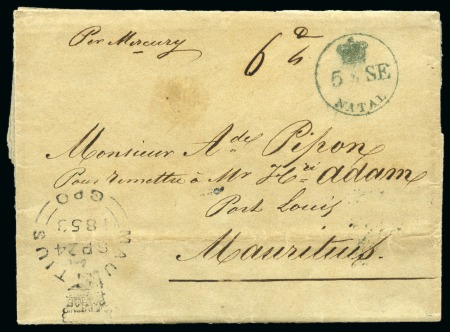 Per Mercury
6d
5 SE
NATAL
Monsieur Ade Pipon
Pour remettre à Mr Hri adam
Port Louis
Mauritius.
MAURITIUS
SP 24
1853
GPO